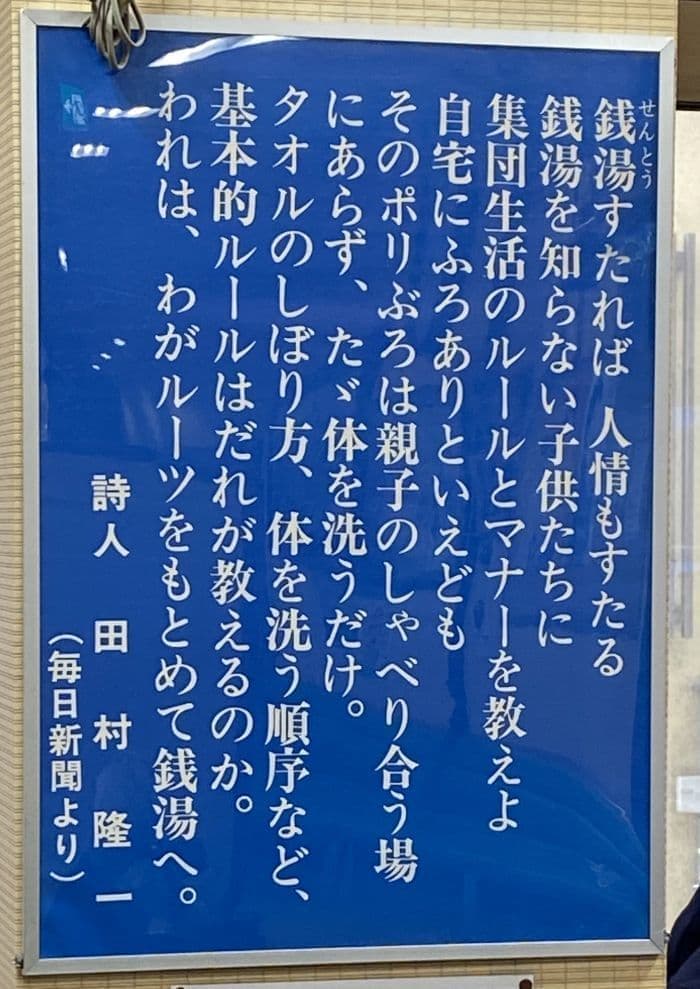 銭湯すたれば 人情もすたる
せんとう
銭湯を知らない子供たちに
集団生活のルールとマナーを教えよ
自宅にふろありといえども
そのポリぶろは親子のしゃべり合う場
にあらず、たゞ体を洗うだけ。
タオルのしぼり方、体を洗う順序など、
基本的ルールはだれが教えるのか。
われは、わがルーツをもとめて銭湯へ。
詩人 田村隆一
（毎日新聞より）